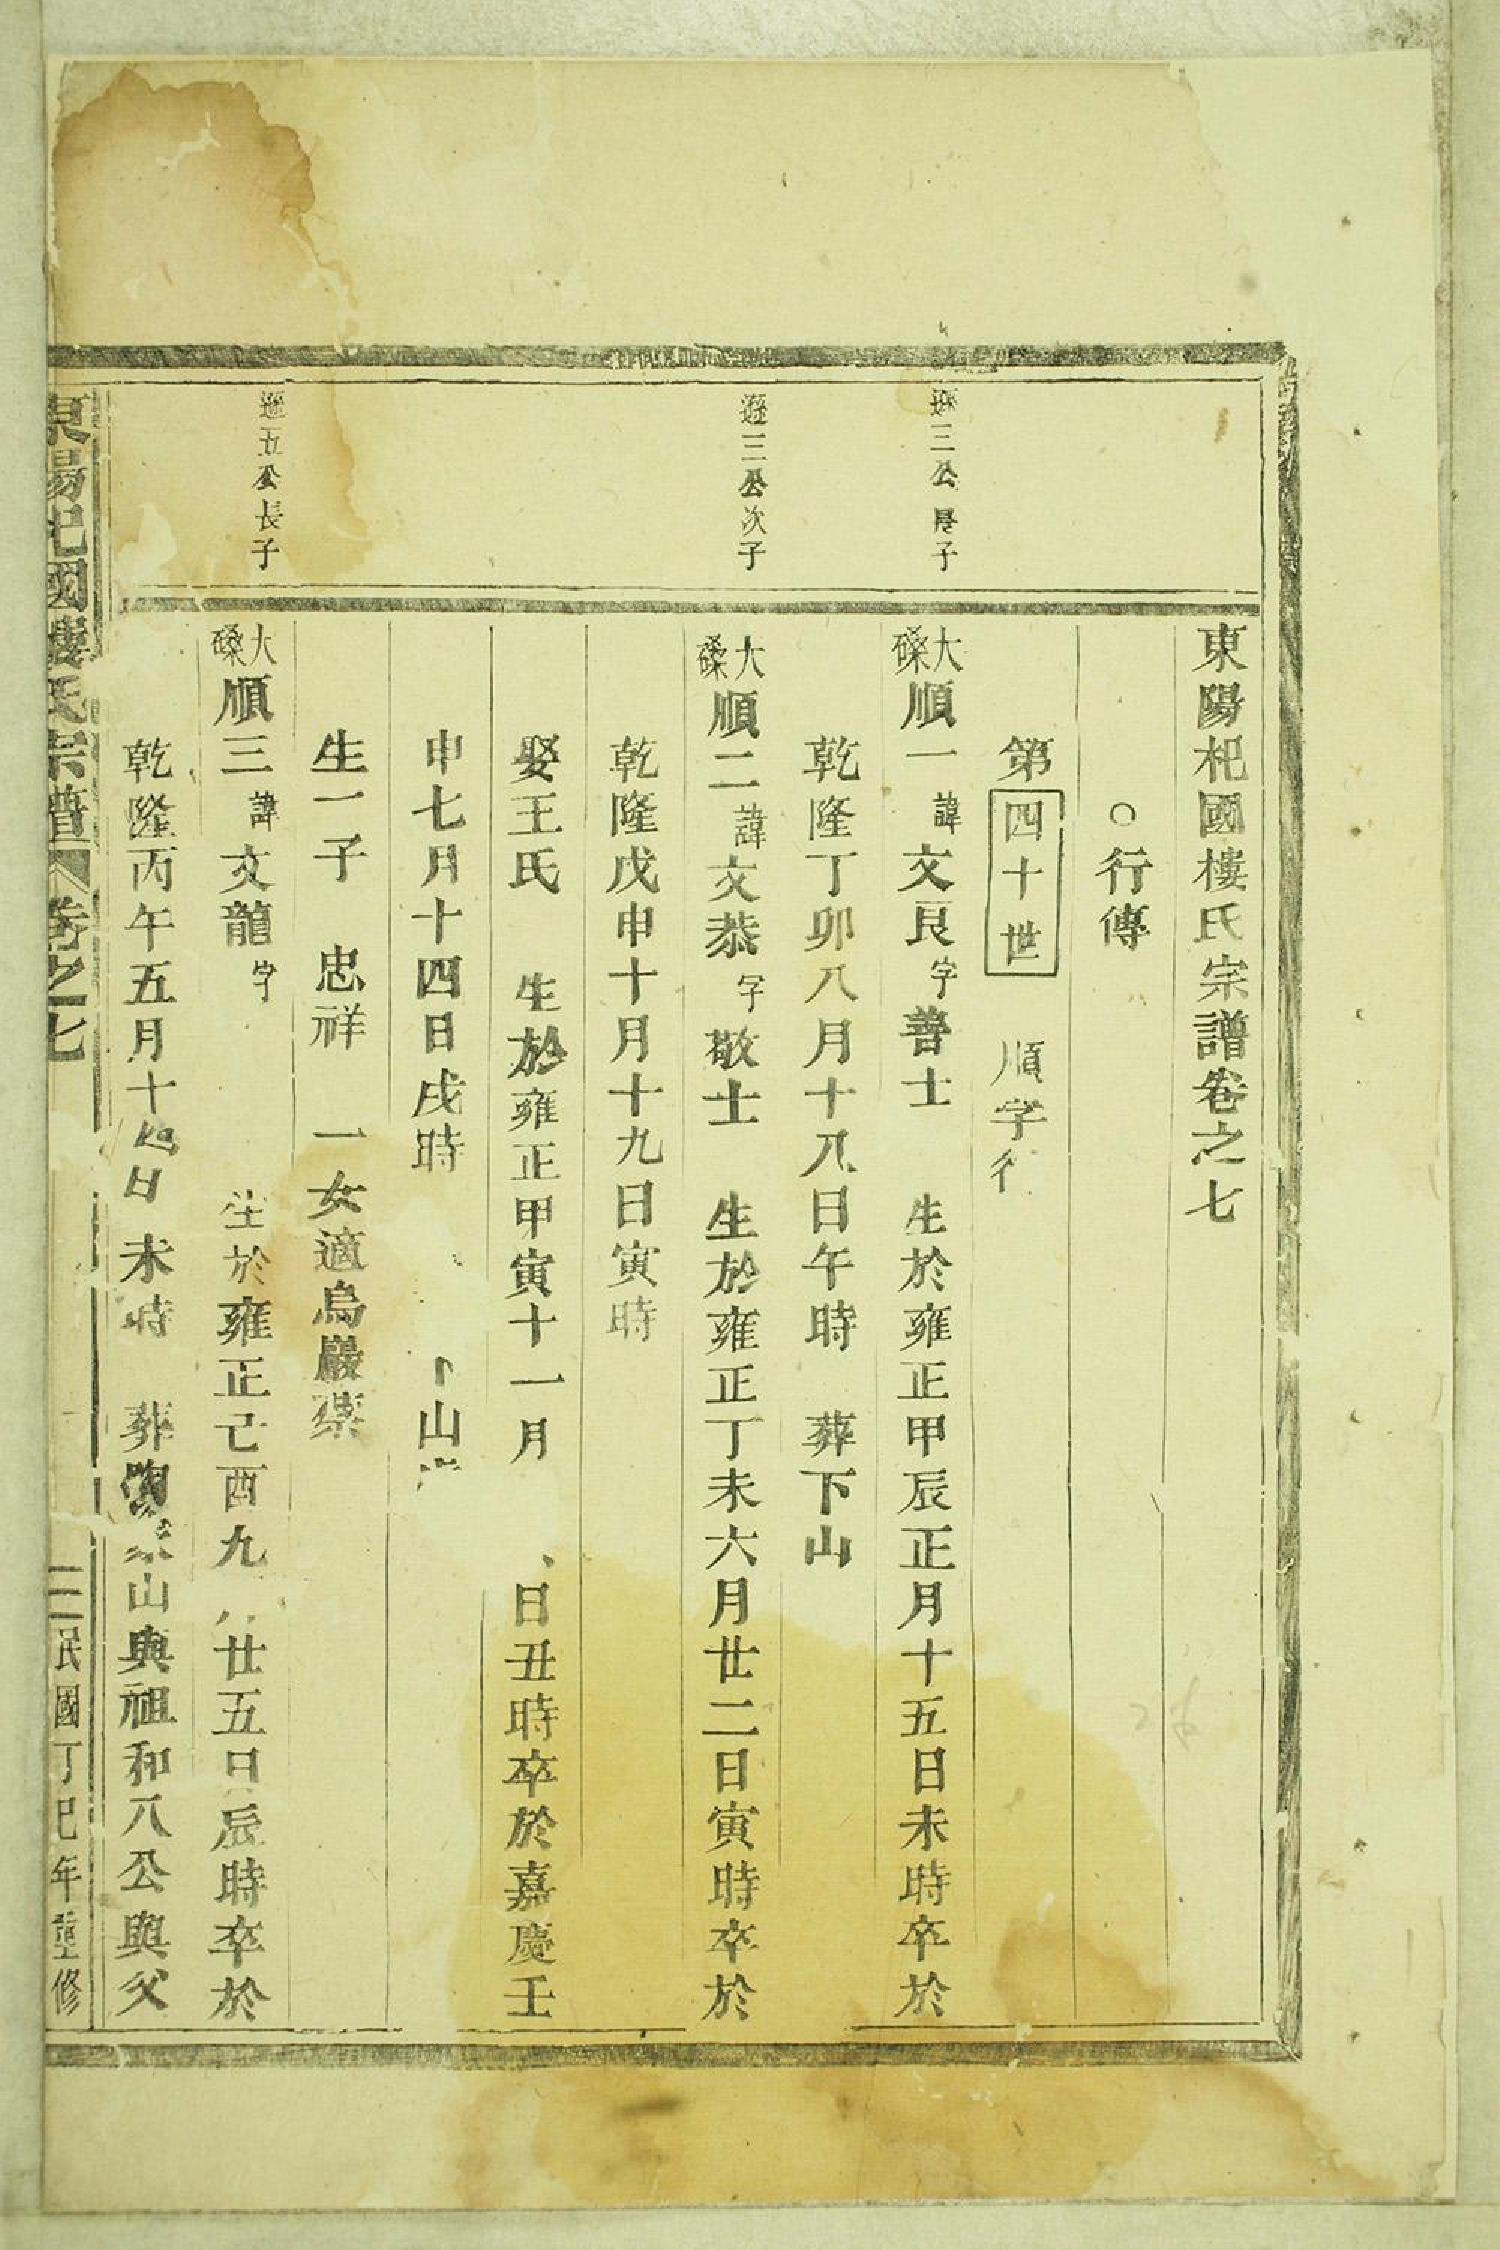 東陽杞國樓氏宗譜卷之七
○行傳
第四十世 順字行
三公長子
大磉順一諱文良字善士 生於雍正甲辰正月十五日未時卒於
乾隆丁卯八月十八日午時 葬下山
遜三公次子
大磉順二諱文恭字敬士 生於雍正丁未六月廿二日寅時卒於
乾隆戊申十月十九日寅時
娶王氏 生於雍正甲寅十一月 日丑時卒於嘉慶壬
申七月十四日戌時 山
生一子 忠祥 一女適烏巖
五公長子
大磉順三諱文龍字 生於雍正己酉九 廿五日辰時卒於
乾隆丙午五月十 日未時 葬 山與祖和八公與父
東陽杞國樓氏宗譜 卷之七 二 民國丁巳年重修